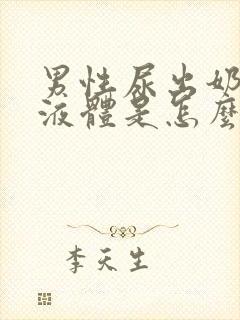 男性尿出奶
液體是怎麼
李天生